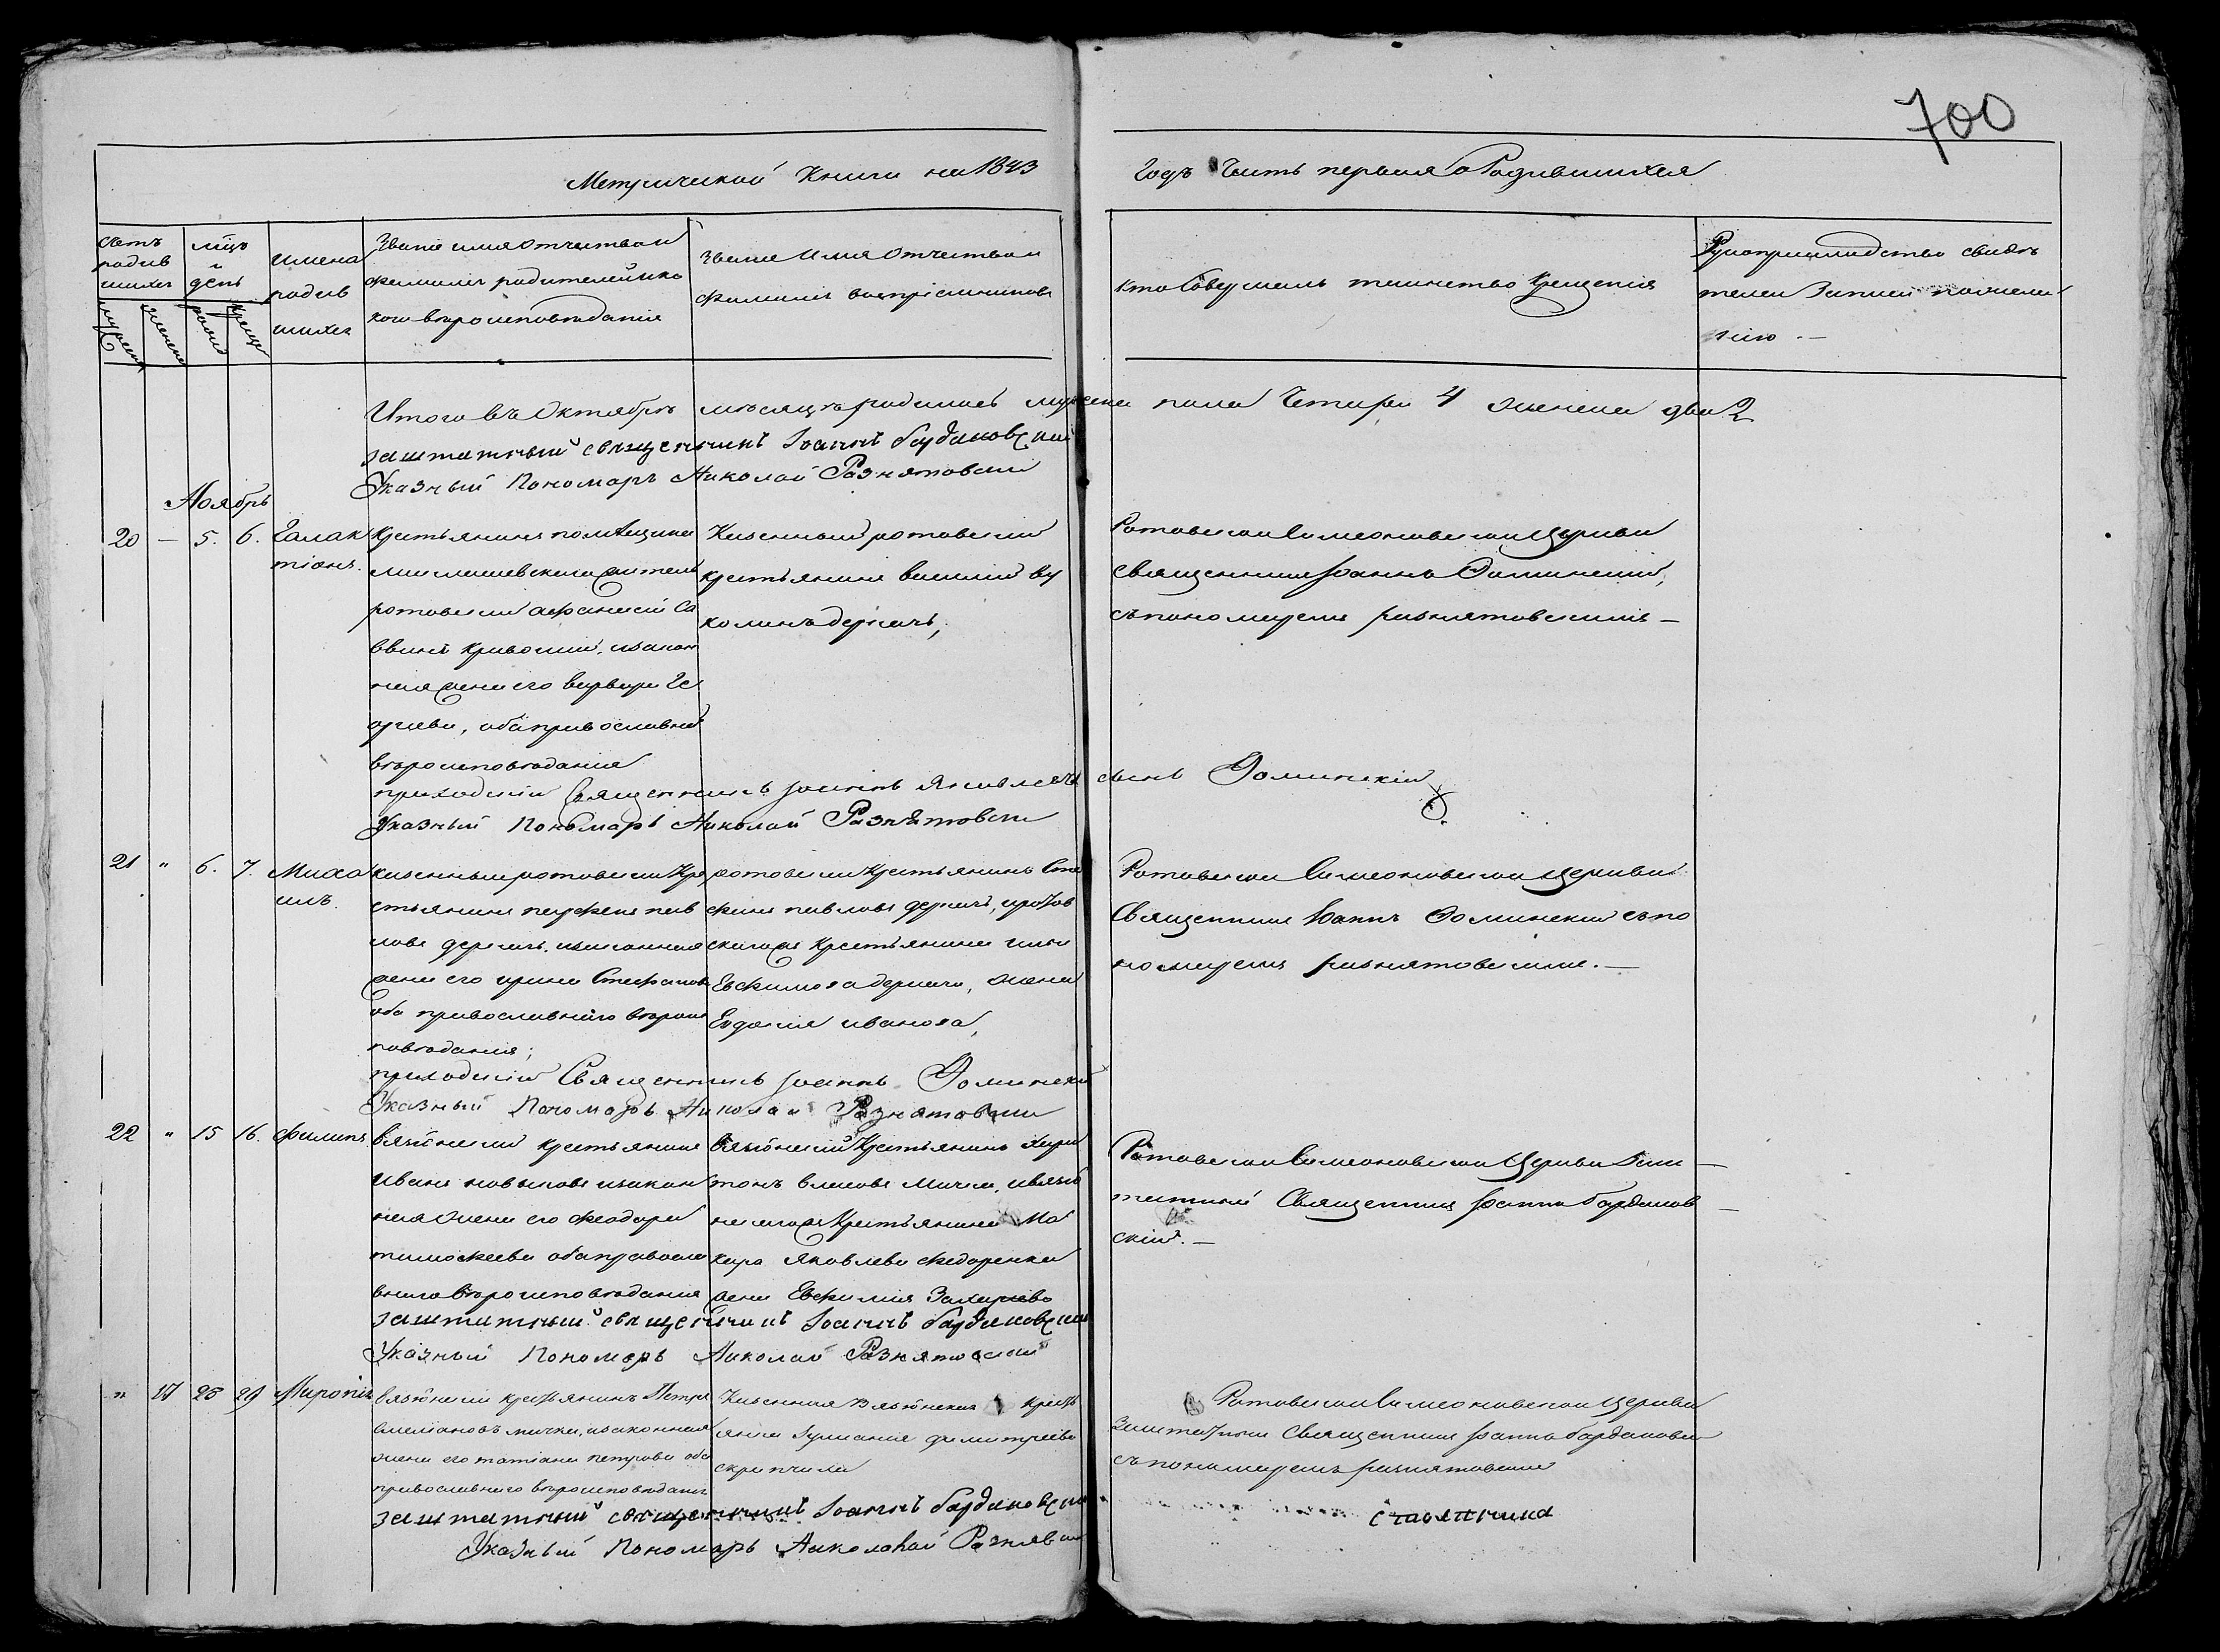 700
Метрической Книги на 1843
Годъ Часть первая о Родившихся
счетъ родив шихся
мужеска
женска
мцъ и день
рожд
крещ
имена родив шихся
Званіе имя отчество и
фамилія родителей и ка
кого вѣроисповѣданія
званіе имя отчество и
фамилія воспріемниковъ
кто Совершалъ таинство Крещенія
Рукоприкладство свидѣ
телей Записи по жела
нію. —
Итого въ Октябрѣ мѣсяцѣ родилось мужеска пола Четыри 4 женска два 2
заштатный священникъ Іоаннъ Бардаковскій
Указный Пономарь Николай Рознятовски
Ноябрь
20 — 5. 6. Галак
тіонъ.
Крестьянинъ помѣщика
житель
ротовский афанасій Са
ввинъ Кривошия. и законн
ная жена его варвара Ге
оргиева, оба православна
вѣроисповѣданія
Казенный ротовский
крестьянинъ василий
деркачъ,
Ротовской Симеоновской Церкви
священникъ Іоаннъ Доминский,
съ пономаремъ рознятовскимъ —
приходскій Священникъ Іоаннъ Яковлевъ сынъ Доминскій
Указный Пономарь Николай Рознятовски
21 " 6. 7. Миха
илъ.
казенный ротовский Кре
стьянинъ пав
ловъ деркачъ. и законная
жена его ирина Стефанова
оба православнаго вѣроис
повѣданія;
ротовский Крестьянинъ Сте
фанъ павловъ деркачъ, и ротов
скагожъ Крестьянина
Евфимова деркача, жена
Евдокия иванова,
Ротовской Симеоновской Церкви
Священникъ Іоаннъ Доминский съ по
номаремъ рознятовскимъ. —
приходский Священникъ Іоаннъ Домински
Указный Пономарь Николай Рознятовски
22 " 15 16. Филипъ
Крестьянинъ
Иванъ и закон
ная жена его феодора
тимофеева оба правосла
внаго вѣроисповѣданія
Крестьянинъ Хари
тонъ власовъ мичка,
Крестьянина Ма
кара Яковлева федоренка
жена Евфимия Захариева
Ротовской Симеоновской Церкви Заш —
татный Священникъ Іоаннъ Бардаков —
скій. —
заштатный священникъ Іоаннъ Бардаковски
Указный Пономарь Николай Рознятовский
" 17 28 29 Миропія
крестьянинъ Петръ
Емелiановъ мичка, и законная
жена его татiана петрова оба
православнаго вѣроисповѣданія
Казенная крестъ
янка Іулианiя димитриева
скрипчиха
Ротовской Симеоновской Церкви
Заштатный Священникъ Іоаннъ Бардаковски
съ пономаремъ рознятовским
заштатный священникъ Іоаннъ Бардаковски
Указный Пономарь Николай